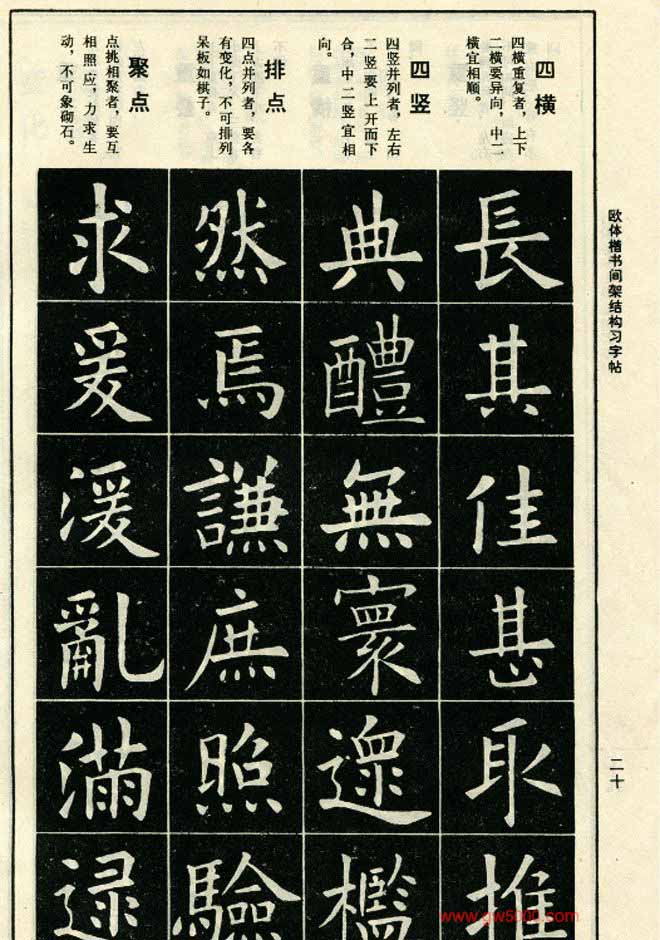 欧体楷书间架结构习字帖
二十
四横
四横重复者，上下
二横要异向，中二
横宜相顺。
長其佳甚取推
四竖
四竖并列者，左右
二竖要上开而下
合，中二竖宜相
向。
典醴無寰檻
排点
四点并列者，要各
有变化，不可排列
呆板如棋子。
然焉謙庶照驗
聚点
点挑相聚者，要互
相照应，力求生
动，不可象砌石。
求爰湲亂滿
www.gw5000.com